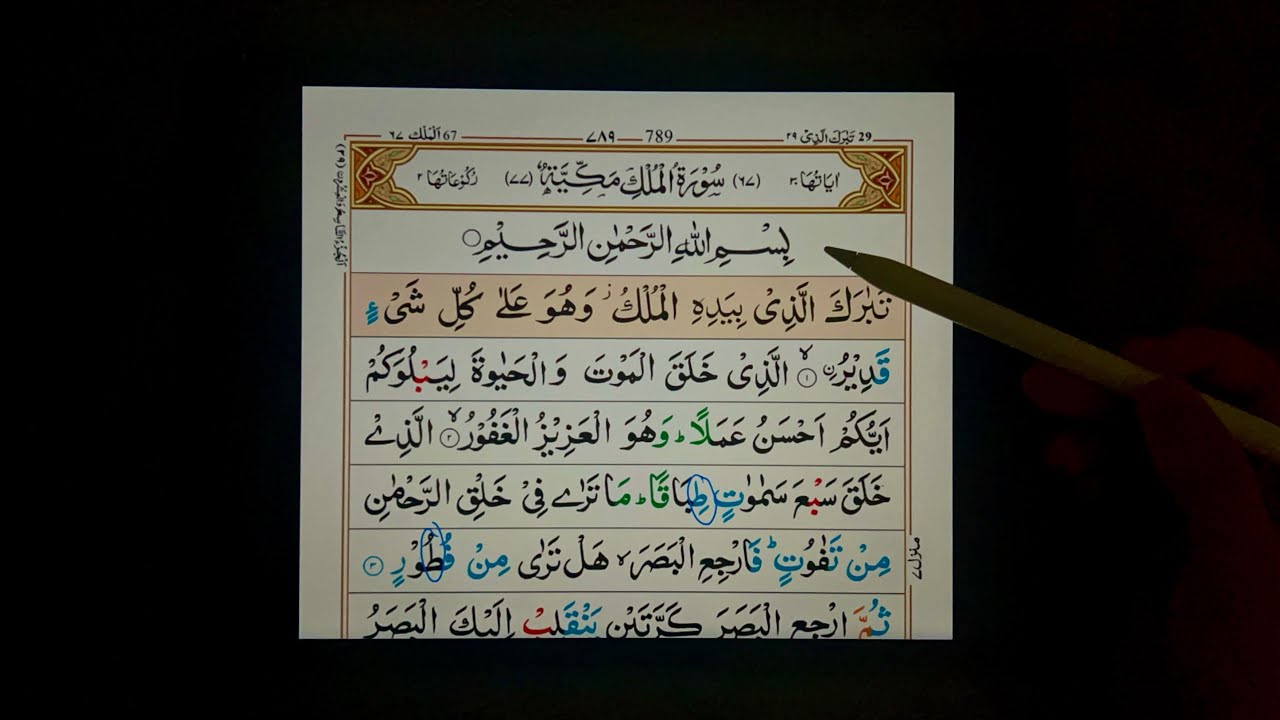 29 تَبٰرَكَ الَّذِىْ ٢٩
789 ٧٨٩
67 اَلْمُلْك ٦٧
اٰيَاتُهَا ٣٠ (٦٧) سُوْرَةُ الْمُلْكِ مَكِّيَّةٌ (٧٧) رُكُوْعَاتُهَا ٢
بِسْمِ اللّٰهِ الرَّحْمٰنِ الرَّحِيْمِ
تَبٰرَكَ الَّذِىْ بِيَدِهِ الْمُلْكُ ز وَهُوَ عَلٰى كُلِّ شَىْءٍ
قَدِيْرُ ۨ ۙ ١ الَّذِىْ خَلَقَ الْمَوْتَ وَالْحَيٰوةَ لِيَبْلُوَكُمْ
اَيُّكُمْ اَحْسَنُ عَمَلًا ؕ وَهُوَ الْعَزِيْزُ الْغَفُوْرُ ۙ ٢ الَّذِىْ
خَلَقَ سَبْعَ سَمٰوٰتٍ طِبَاقًا ؕ مَا تَرٰى فِىْ خَلْقِ الرَّحْمٰنِ
مِنْ تَفٰوُتٍ ؕ فَارْجِعِ الْبَصَرَ ۙ هَلْ تَرٰى مِنْ فُطُوْرٍ ٣
ثُمَّ ارْجِعِ الْبَصَرَ كَرَّتَيْنِ يَنْقَلِبْ اِلَيْكَ الْبَصَرُ
منزل ٧